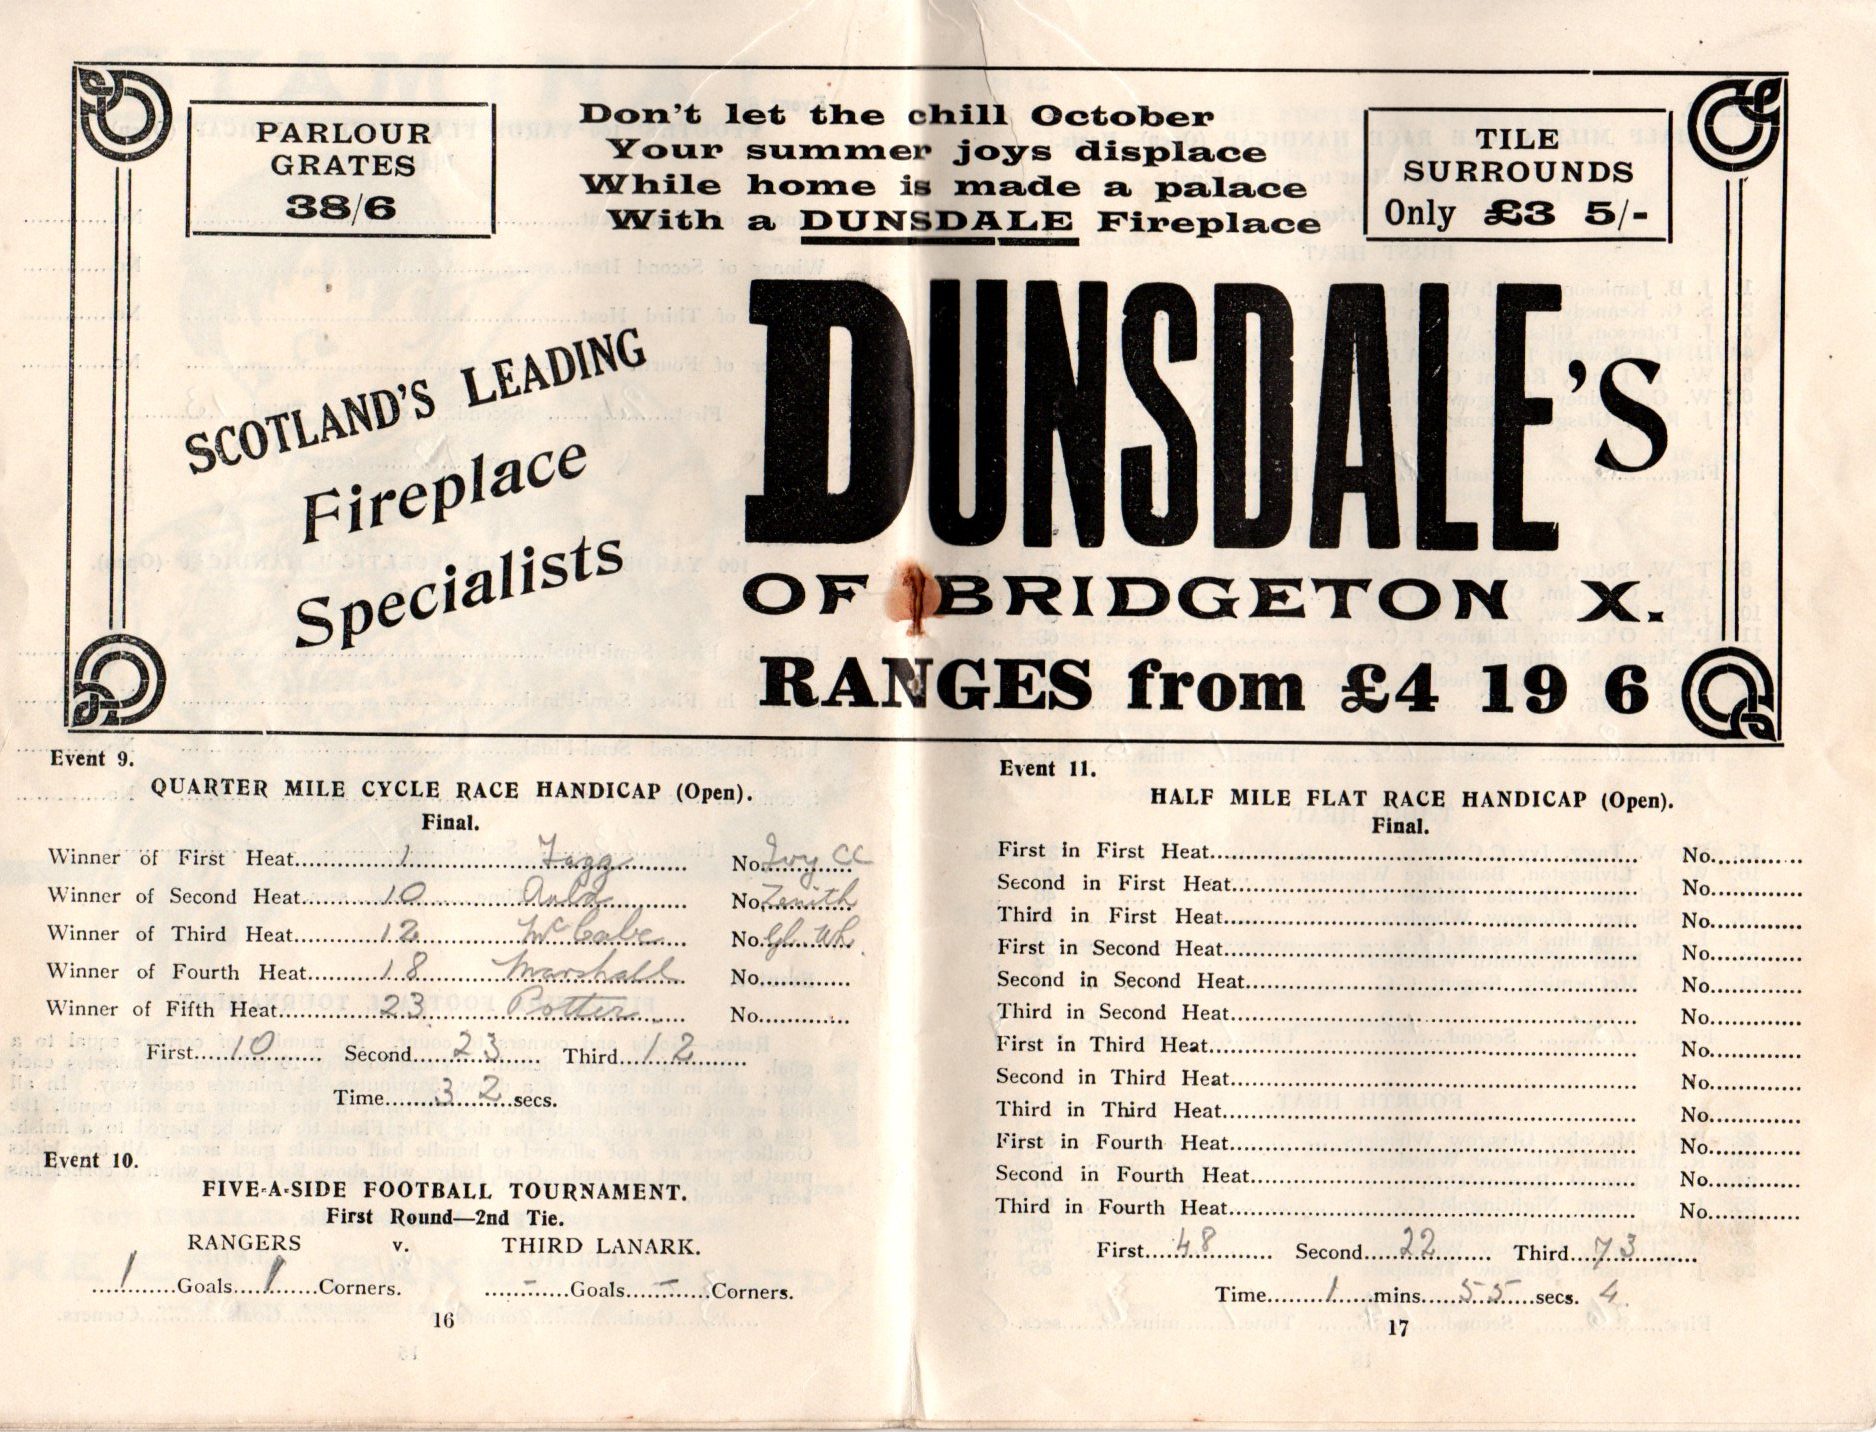 PARLOUR
GRATES
38/6
Don't let the chill October
Your summer joys displace
While home is made a palace
With a DUNSDALE Fireplace
TILE
SURROUNDS
Only £3 5/-
SCOTLAND'S LEADING
Fireplace
Specialists
DUNSDALE'S
OF BRIDGETON X.
RANGES from £4 19 6
Event 9.
QUARTER MILE CYCLE RACE HANDICAP (Open).
Final.
Winner of First Heat 1 Fagg No. Ivy CC
Winner of Second Heat 10 Auld No. Zenith
Winner of Third Heat 12 McCabe No. Gl. Wh.
Winner of Fourth Heat 18 Marshall No.
Winner of Fifth Heat 23 Potter No.
First 10 Second 23 Third 12
Time 32 secs.
Event 10.
FIVE-A-SIDE FOOTBALL TOURNAMENT.
First Round—2nd Tie.
RANGERS v. THIRD LANARK.
1 Goals 1 Corners. - Goals - Corners.
16
Event 11.
HALF MILE FLAT RACE HANDICAP (Open).
Final.
First in First Heat No.
Second in First Heat No.
Third in First Heat No.
First in Second Heat No.
Second in Second Heat No.
Third in Second Heat No.
First in Third Heat No.
Second in Third Heat No.
Third in Third Heat No.
First in Fourth Heat No.
Second in Fourth Heat No.
Third in Fourth Heat No.
First 48 Second 22 Third 73
Time 1 mins 55 secs. 4
17